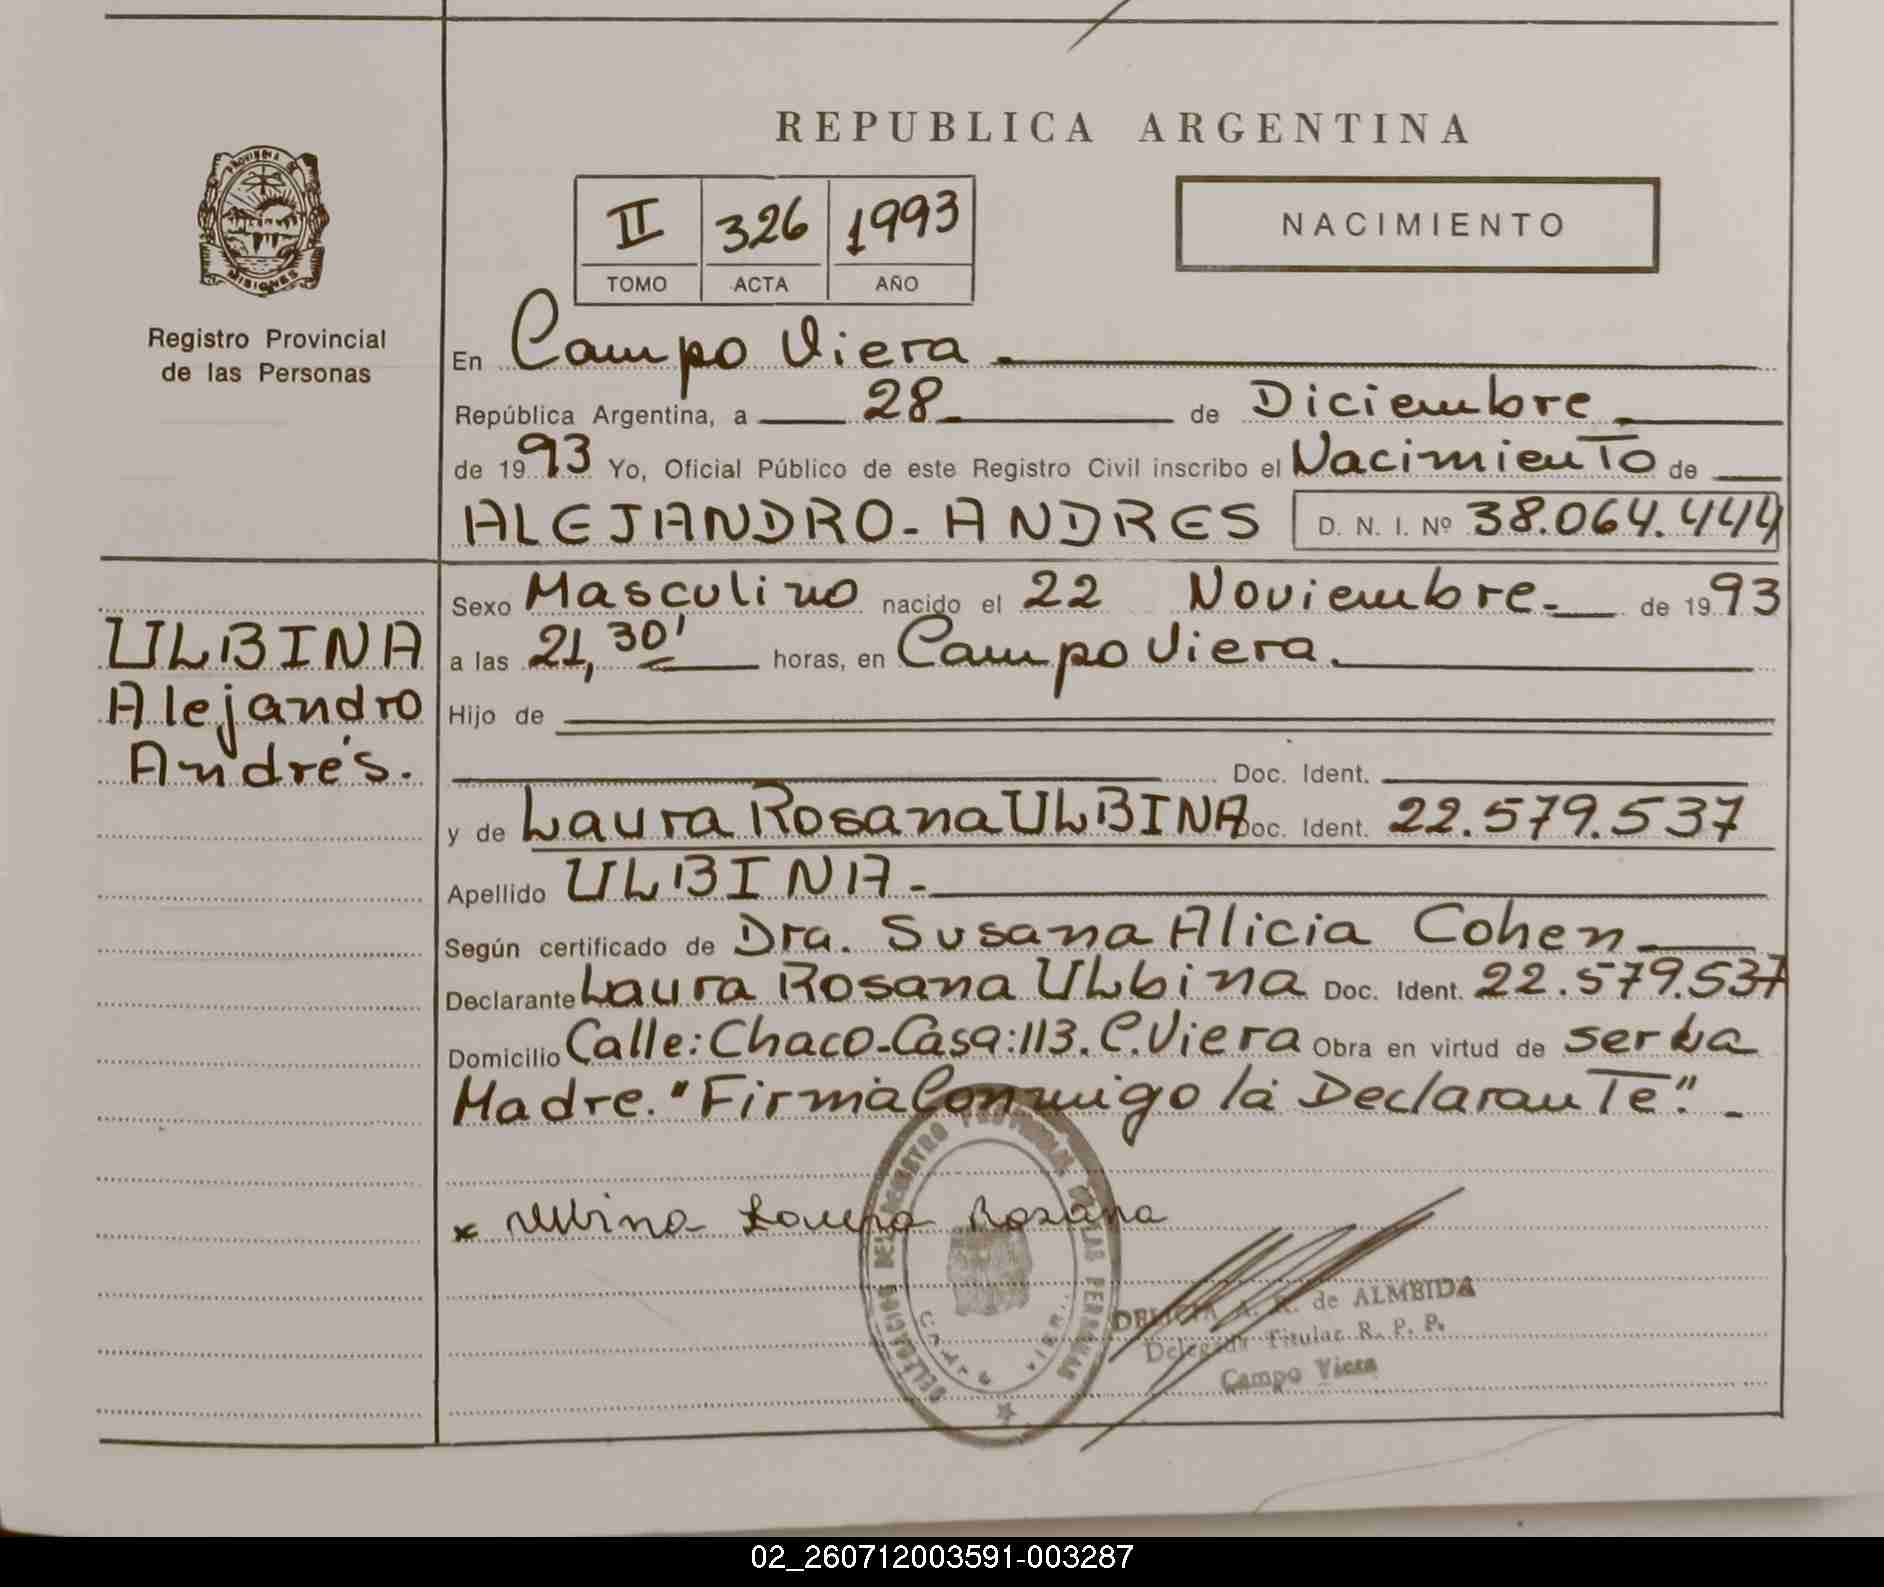 REPUBLICA ARGENTINA
PROVINCIA DE
MISIONES
Registro Provincial
de las Personas
II 326 1993
TOMO ACTA AÑO
NACIMIENTO
En Campo Viera
República Argentina, a 28 de Diciembre
de 1993 Yo, Oficial Público de este Registro Civil inscribo el Nacimiento de
ALEJANDRO-ANDRES D. N. I. Nº 38.064.444
ULBINA
Alejandro
Andrés.
Sexo Masculino nacido el 22 Noviembre de 1993
a las 21,30' horas, en Campo Viera.
Hijo de
Doc. Ident.
y de Laura Rosana ULBINA Doc. Ident. 22.579.537
Apellido ULBINA-
Según certificado de Dra. Susana Alicia Cohen
Declarante Laura Rosana ULbina Doc. Ident. 22.579.537
Domicilio Calle: Chaco-Casa:113. C.Viera Obra en virtud de ser la
Madre. "Firma Conmigo la Declarante".-
x Ulbina Laura Rosana
DELEGACION DEL REGISTRO PROVINCIAL DE LAS PERSONAS
CAMPO VIERA
DELICIA A. R. de ALMEIDA
Delegada Titular R. P. P.
Campo Viera
02_260712003591-003287